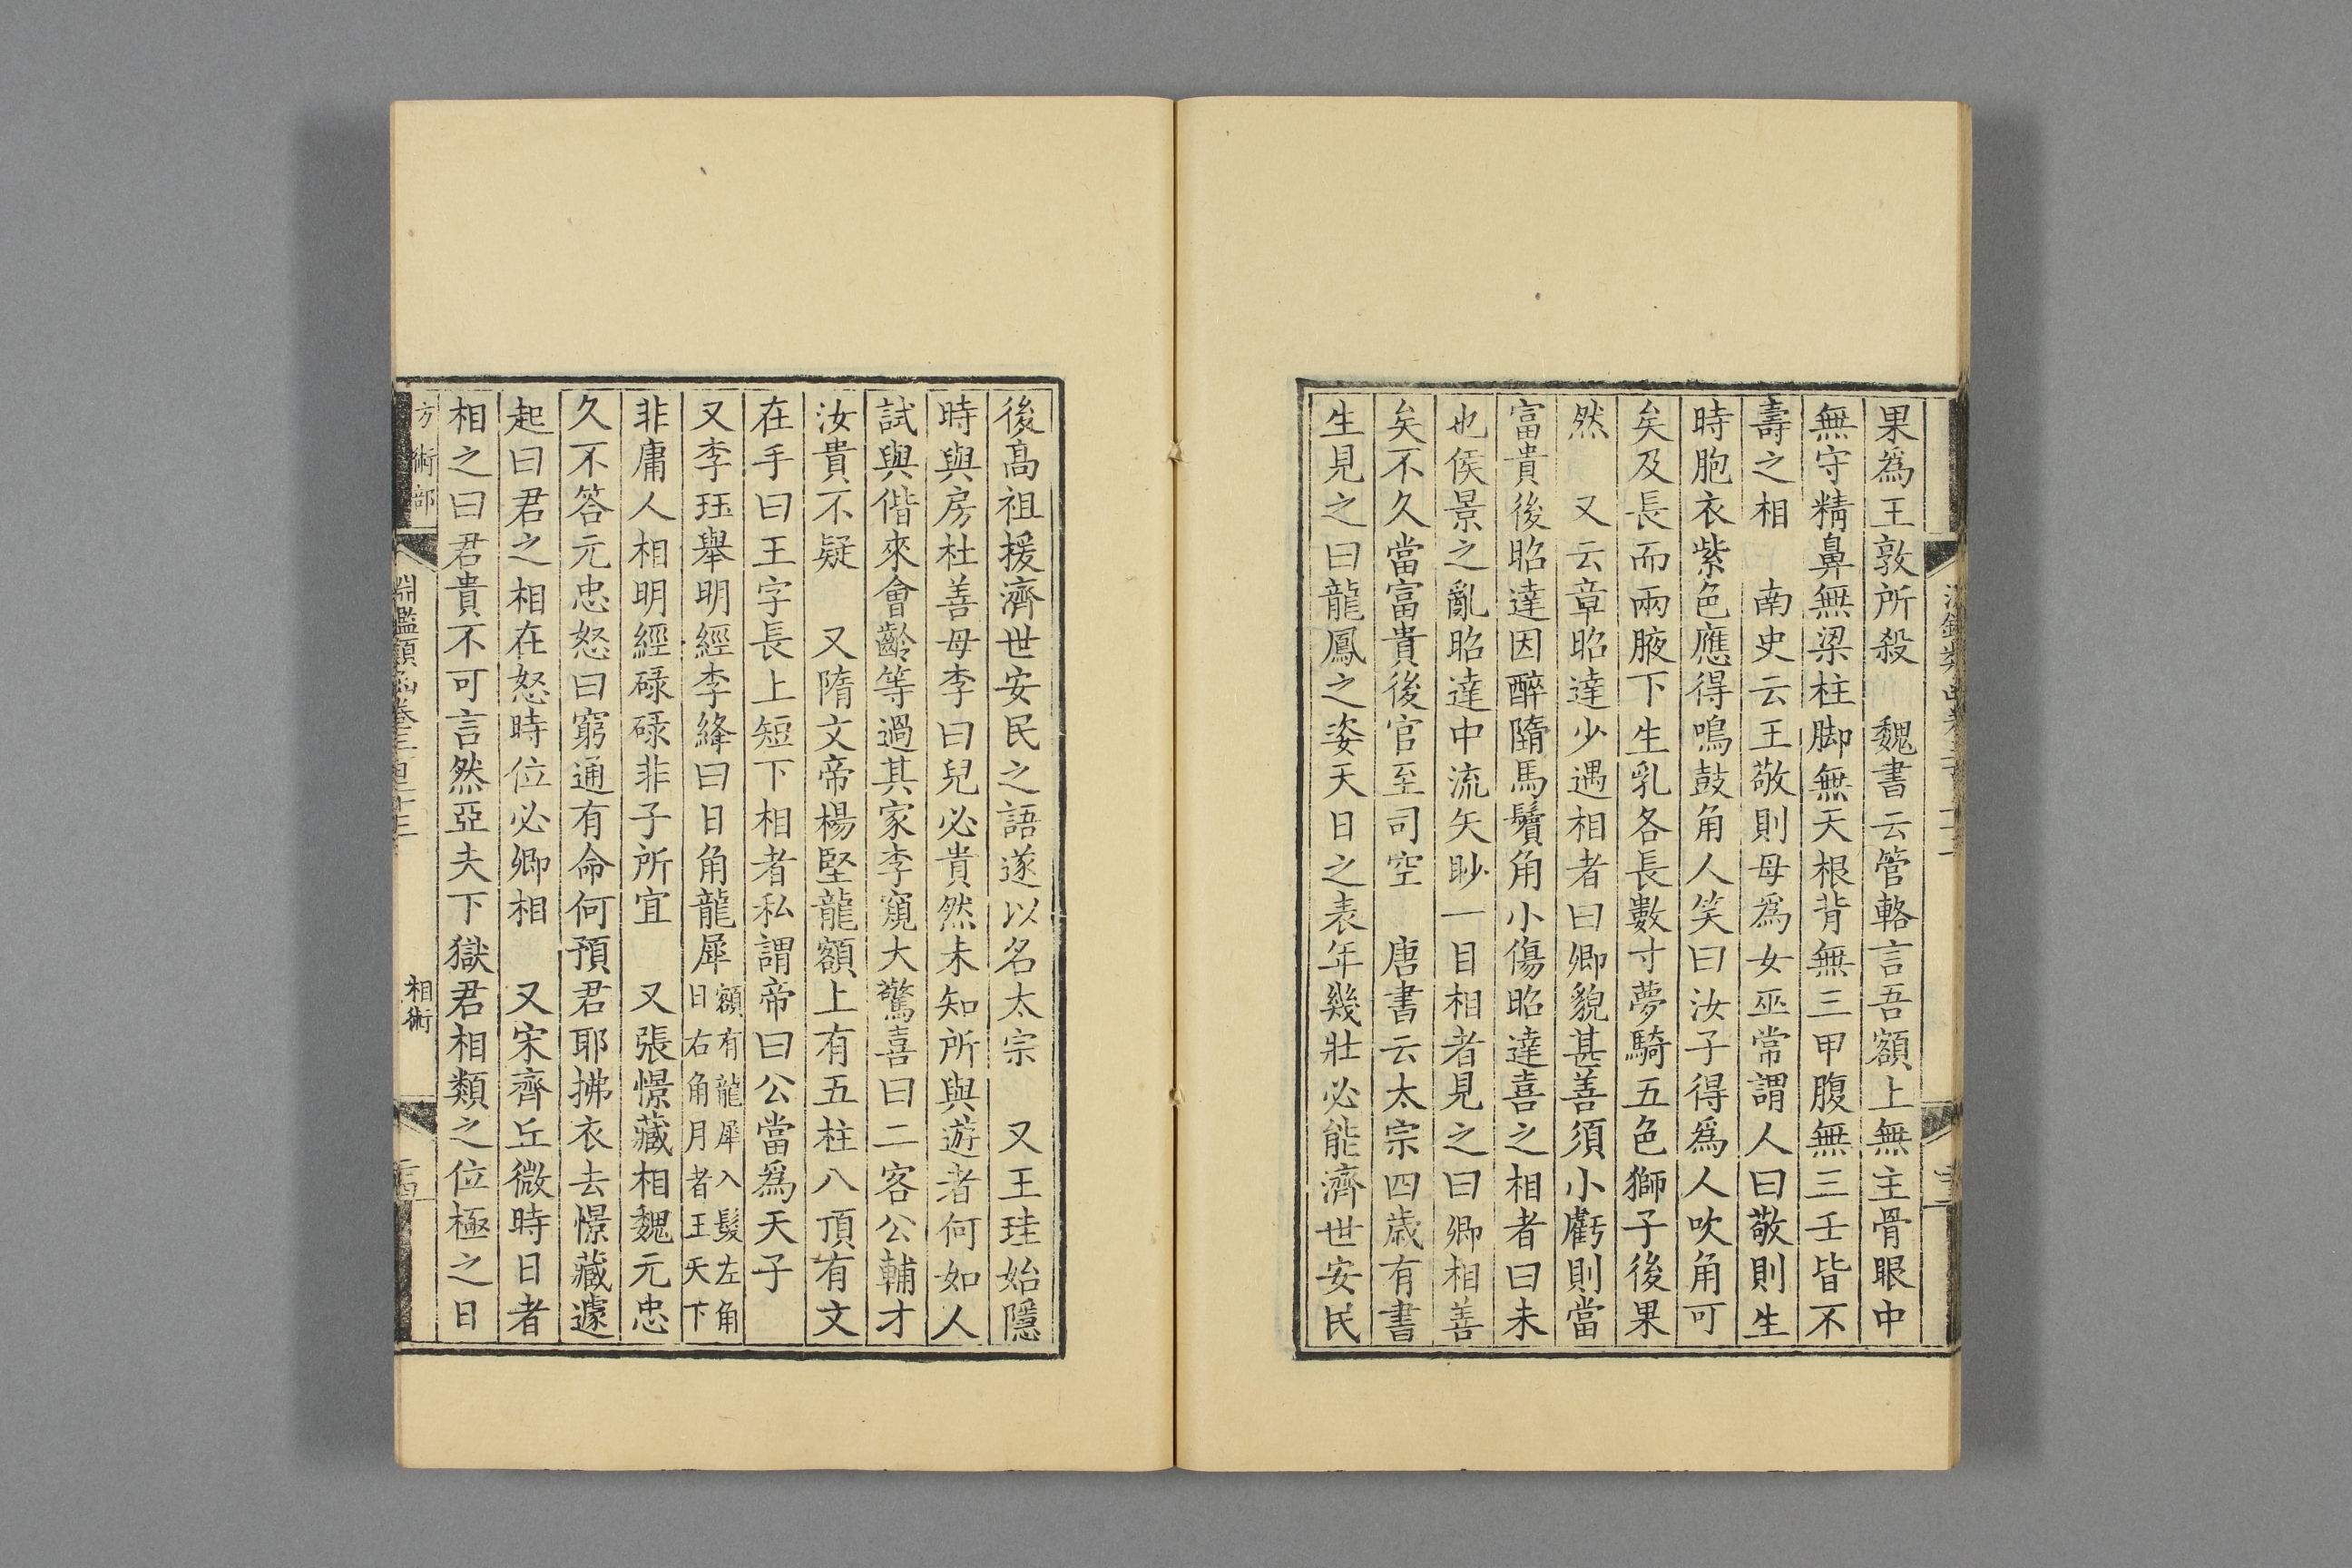 果爲王敦所殺　魏書云管輅言吾額上無主骨眼中
無守精鼻無梁柱脚無天根背無三甲腹無三壬皆不
壽之相　南史云王敬則母爲女巫常謂人曰敬則生
時胞衣紫色應得鳴鼓角人笑曰汝子得爲人吹角可
矣及長而兩腋下生乳各長數寸夢騎五色獅子後果
然　又云章昭達少遇相者曰卿貌甚善須小虧則當
富貴後昭達因醉隋馬鬢角小傷昭達喜之相者曰未
也侯景之亂昭達中流矢眇一目相者見之曰卿相善
矣不久當富貴後官至司空　唐書云太宗四歲有書
生見之曰龍鳳之姿天日之表年幾壯必能濟世安民
後高祖援濟世安民之語遂以名太宗　又王珪始隱
時與房杜善母李曰兒必貴然未知所與遊者何如人
試與偕來會齡等過其家李窺大驚喜曰二客公輔才
汝貴不疑　又隋文帝楊堅龍額上有五柱八頂有文
在手曰王字長上短下相者私謂帝曰公當爲天子
又李珏舉明經李絳曰日角龍犀額有龍犀入髮左角日右角月者王天下
非庸人相明經碌碌非子所宜　又張憬藏相魏元忠
久不答元忠怒曰窮通有命何預君耶拂衣去憬藏遽
起曰君之相在怒時位必卿相　又宋齊丘微時日者
相之曰君貴不可言然亞夫下獄君相類之位極之日
方術部
淵鑑類函卷三百二十三
相術